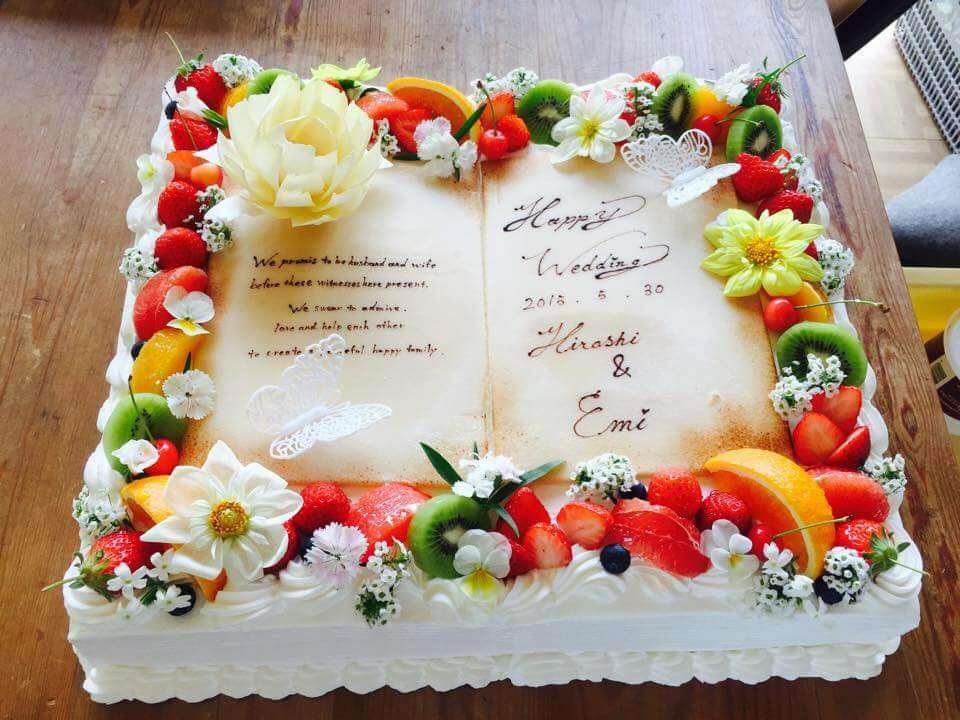 We promis to be husband and wife
before these witnesses here present.
We swear to admire,
love and help each other
to create a ful happy family.
Happy
Wedding
2015. 5. 30
Hiroshi
&
Emi